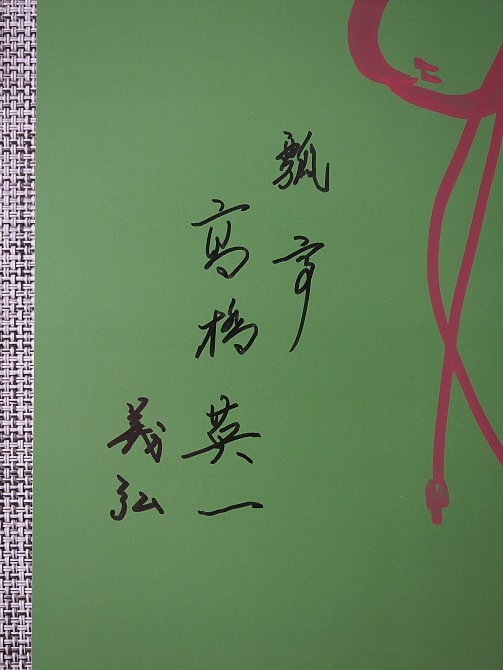 瓢亭
高橋英一
義弘